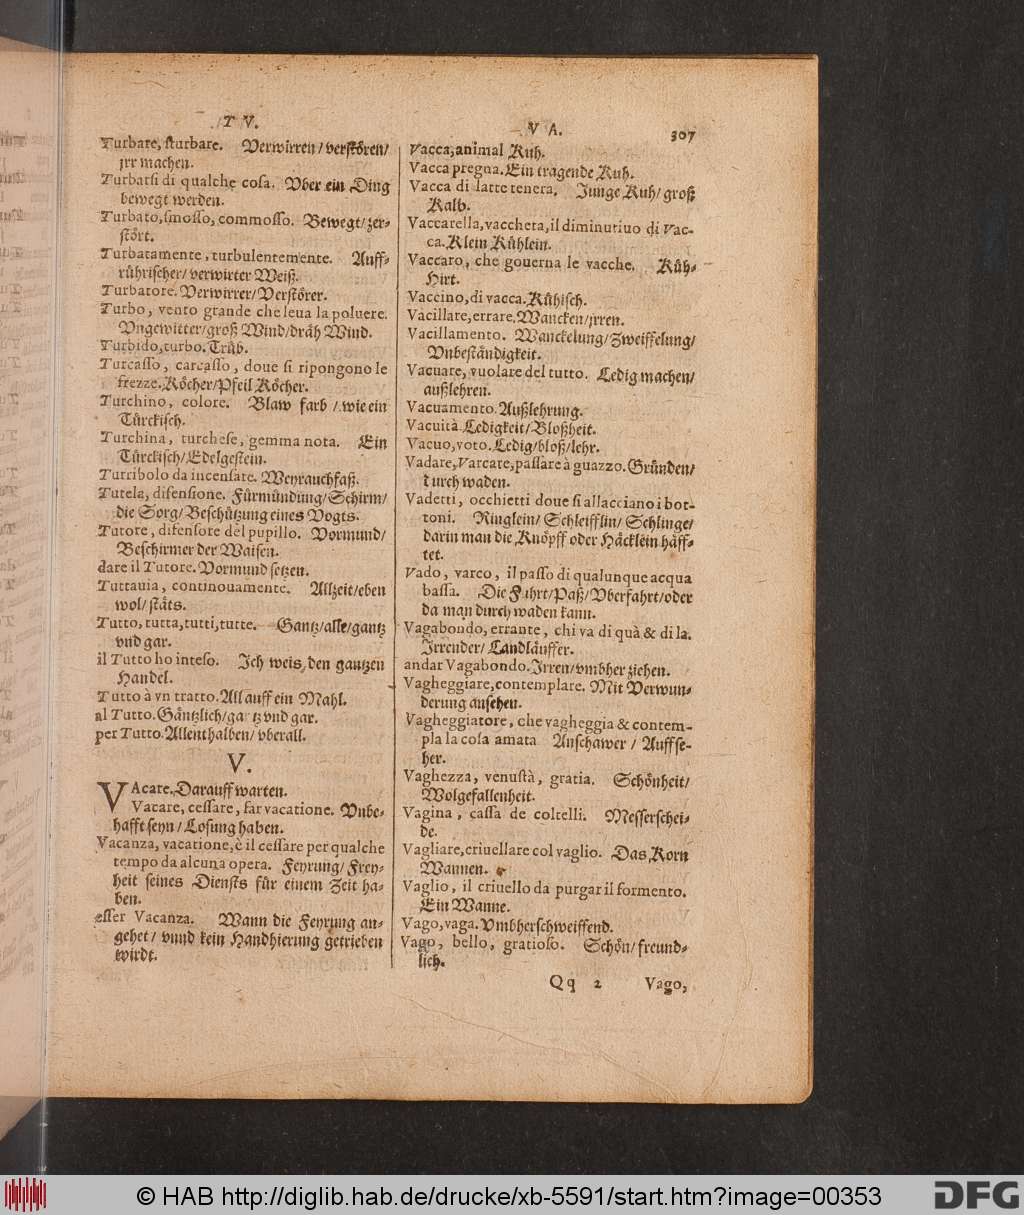 T V.
Turbare, sturbare. Verwirren/ verstören/
jrr machen.
Turbarsi di qualche cosa. Vber ein Ding
bewegt werden.
Turbato, smosso, commosso. Bewegt/ zer-
stört.
Turbatamente, turbulentemente. Auff-
rührischer/ verwirter Weiß.
Turbatore. Verwirrer/ Verstörer.
Turbo, vento grande che leua la poluere.
Vngewitter/ groß Wind/ dräh Wind.
Turbido, turbo. Trüb.
Turcasso, carcasso, doue si ripongono le
frezze. Köcher/ Pfeil Köcher.
Turchino, colore. Blaw farb / wie ein
Türckisch.
Turchina, turchese, gemma nota. Ein
Türckisch/ Edelgestein.
Turribolo da incensare. Weyrauchfaß.
Tutela, difensione. Fürmündung/ Schirm/
die Sorg/ Beschützung eines Vogts.
Tutore, difensore del pupillo. Vormund/
Beschirmer der Waisen.
dare il Tutore. Vormund setzen.
Tuttauia, continouamente. Allzeit/ eben
wol/ stäts.
Tutto, tutta, tutti, tutte. Gantz/ alle/ gantz
vnd gar.
il Tutto ho inteso. Ich weis, den gantzen
Handel.
Tutto à vn tratto. All auff ein Mahl.
al Tutto. Gäntzlich/ gantz vnd gar.
per Tutto. Allenthalben/ vberall.
V.
VAcare. Darauff warten.
Vacare, cessare, far vacatione. Vnbe-
hafft seyn/ Losung haben.
Vacanza, vacatione, è il cessare per qualche
tempo da alcuna opera. Feyrung/ Frey-
heit seines Diensts für einem Zeit ha-
ben.
esser Vacanza. Wann die Feyrung an-
gehet/ vnnd kein Handhierung getrieben
wirdt.
V A.
307
Vacca, animal Kuh.
Vacca pregna. Ein tragende Kuh.
Vacca di latte tenera. Junge Kuh/ groß
Kalb.
Vaccarella, vaccheta, il diminutiuo di Vac-
ca. Klein Kühlein.
Vaccaro, che gouerna le vacche. Küh-
Hirt.
Vaccino, di vacca. Kühisch.
Vacillare, errare. Wancken/ jrren.
Vacillamento. Wanckelung/ Zweiffelung/
Vnbeständigkeit.
Vacuare, vuolare del tutto. Ledig machen/
außlehren.
Vacuamento. Außlehrung.
Vacuità. Ledigkeit/ Bloßheit.
Vacuo, voto. Ledig/ bloß/ lehr.
Vadare, Varcare, passare à guazzo. Gründen/
durch waden.
Vadetti, occhietti doue si allacciano i bot-
toni. Ringlein/ Schleifflin/ Schlinge/
darin man die Knöpff oder Häcklein häff-
tet.
Vado, varco, il passo di qualunque acqua
bassa. Die Fuhrt/ Paß/ Vberfahrt/ oder
da man durch waden kann.
Vagabondo, errante, chi va di quà & di la.
Irrender/ Landläuffer.
andar Vagabondo. Irren/ vmbher ziehen.
Vagheggiare, contemplare. Mit Verwun-
derung ansehen.
Vagheggiatore, che vagheggia & contem-
pla la cosa amata Anschawer / Auffse-
her.
Vaghezza, venustà, gratia. Schönheit/
Wolgefallenheit.
Vagina, cassa de coltelli. Messerschei-
de.
Vagliare, criuellare col vaglio. Das Korn
Wannen.
Vaglio, il criuello da purgar il formento.
Ein Wanne.
Vago, vaga. Vmbherschweiffend.
Vago, bello, gratioso. Schön/ freund-
lich.
Qq 2 Vago,
© HAB http://diglib.hab.de/drucke/xb-5591/start.htm?image=00353
DFG